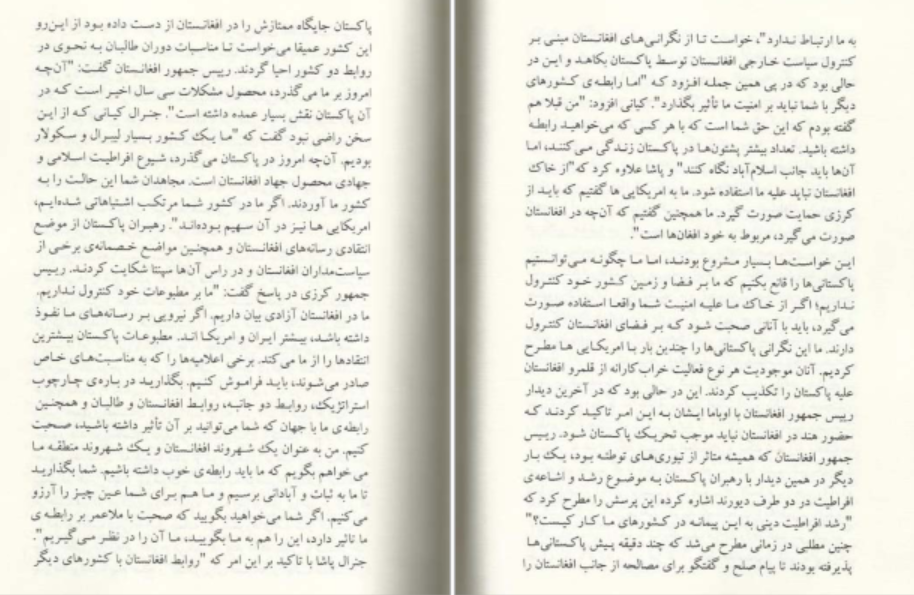 پاکستان جایگاه ممتازش را در افغانستان از دست داده بود از این‌رو
این کشور عمیقا می‌خواست تا مناسبات دوران طالبان به نحوی در
روابط دو کشور احیا گردند. رییس جمهور افغانستان گفت: "آن‌چه
امروز بر ما می‌گذرد، محصول مشکلات سی سال اخیر است که در
آن پاکستان نقش بسیار عمده داشته است". جنرال کیانی که از این
سخن راضی نبود گفت که "ما یک کشور بسیار لیبرال و سکولار
بودیم. آن‌چه امروز در پاکستان می‌گذرد، شیوع افراطیت اسلامی و
جهادی محصول جهاد افغانستان است. مجاهدان شما این حالت را به
کشور ما آوردند. اگر ما در کشور شما مرتکب اشتباهاتی شده‌ایم،
امریکایی ها نیز در آن سهیم بوده‌اند". رهبران پاکستان از موضع
انتقادی رسانه‌های افغانستان و همچنین مواضع خصمانه‌ی برخی از
سیاست‌مداران افغانستان و در راس آن‌ها سپنتا شکایت کردند. رییس
جمهور کرزی در پاسخ گفت: "ما بر مطبوعات خود کنترول نداریم.
ما در افغانستان آزادی بیان داریم. اگر نیرویی بر رسانه‌های ما نفوذ
داشته باشد، بیشتر ایران و امریکا اند. مطبوعات پاکستان بیشترین
انتقادها را از ما می کند. برخی اعلامیه‌ها را که به مناسبت‌های خاص
صادر می‌شوند، باید فراموش کنیم. بگذارید در باره‌ی چارچوب
استراتژیک، روابط دو جانبه، روابط افغانستان و طالبان و همچنین
رابطه‌ی ما با جهان که شما می‌توانید بر آن تأثیر داشته باشید، صحبت
کنیم. من به عنوان یک شهروند افغانستان و یک شهروند منطقه ما
می خواهم بگویم که ما باید رابطه‌ی خوب داشته باشیم. شما بگذارید
تا ما به ثبات و آبادانی برسیم و ما هم برای شما عین چیز را آرزو
می‌کنیم. اگر شما می‌خواهید بگویید که صحبت با ملاعمر بر رابطه ی
ما تاثیر دارد، این را هم به ما بگویید، ما آن را در نظر می‌گیریم".
جنرال پاشا با تاکید بر این امر که "روابط افغانستان با کشورهای دیگر
به ما ارتباط ندارد"، خواست تا از نگرانی‌های افغانستان مبنی بر
کنترول سیاست خارجی افغانستان توسط پاکستان بکاهد و این در
حالی بود که در پی همین جمله افزود که "اما رابطه‌ی کشورهای
دیگر با شما نباید بر امنیت ما تأثیر بگذارد". کیانی افزود: "من قبلا هم
گفته بودم که این حق شما است که با هر کسی که می‌خواهید رابطه
داشته باشید. تعداد بیشتر پشتون‌ها در پاکستان زندگی می‌کنند، اما
آن‌ها باید جانب اسلام‌آباد نگاه کنند" و پاشا علاوه کرد که "از خاک
افغانستان نباید علیه ما استفاده شود. ما به امریکایی ها گفتیم که باید از
کرزی حمایت صورت گیرد. ما همچنین گفتیم که آن‌چه در افغانستان
صورت می‌گیرد، مربوط به خود افغان‌ها است".
این خواست‌ها بسیار مشروع بودند، اما ما چگونه می‌توانستیم
پاکستانی‌ها را قانع بکنیم که ما بر فضا و زمین کشور خود کنترول
نداریم؛ اگر از خاک ما علیه امنیت شما واقعا استفاده صورت
می‌گیرد، باید با آنانی صحبت شود که بر فضای افغانستان کنترول
دارند. ما این نگرانی پاکستانی‌ها را چندین بار با امریکایی ها مطرح
کردیم. آنان موجودیت هر نوع فعالیت خراب‌کارانه از قلمرو افغانستان
علیه پاکستان را تکذیب کردند. این در حالی بود که در آخرین دیدار
رییس جمهور افغانستان با اوباما ایشان به این امر تاکید کردند که
حضور هند در افغانستان نباید موجب تحریک پاکستان شود. رییس
جمهور افغانستان که همیشه متاثر از تیوری‌های توطئه بود، یک بار
دیگر در همین دیدار با رهبران پاکستان به موضوع رشد و اشاعه‌ی
افراطیت در دو طرف دیورند اشاره کرده این پرسش را مطرح کرد که
"رشد افراطیت دینی به این پیمانه در کشورهای ما کار کیست؟"
چنین مطلبی در زمانی مطرح می‌شد که چند دقیقه پیش پاکستانی‌ها
پذیرفته بودند تا پیام صلح و گفتگو برای مصالحه از جانب افغانستان را